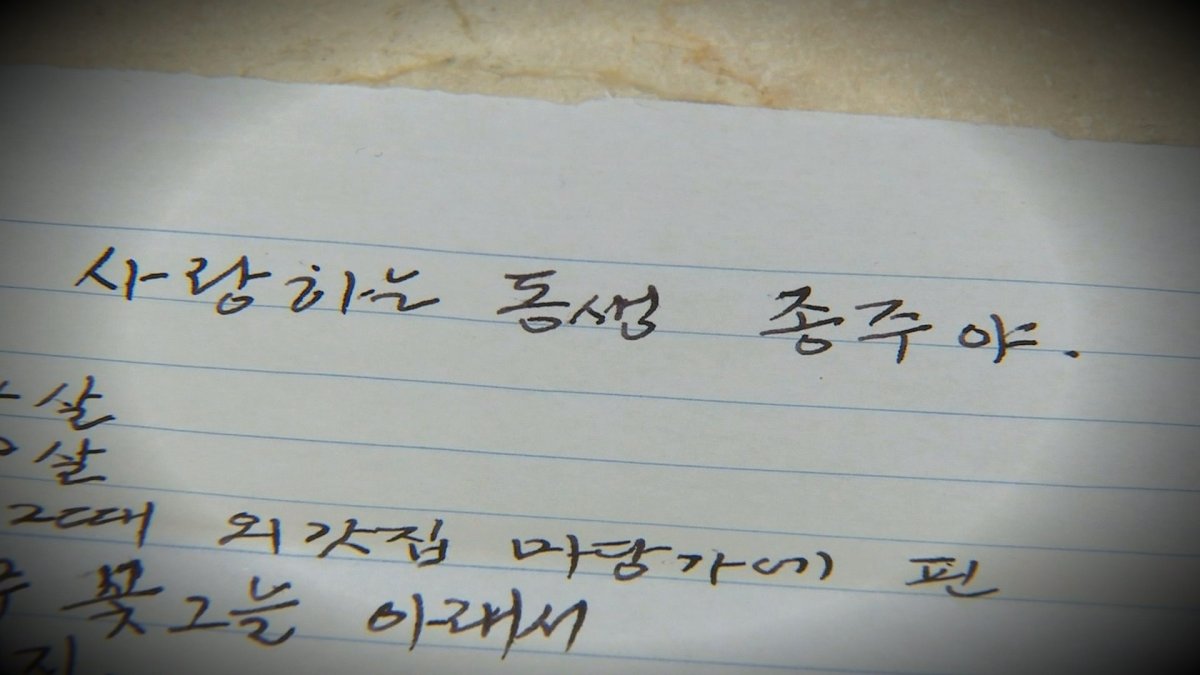 사랑하는 동생 종주야.
살
살
그때 외갓집 마당가에 핀
꽃그늘 아래서